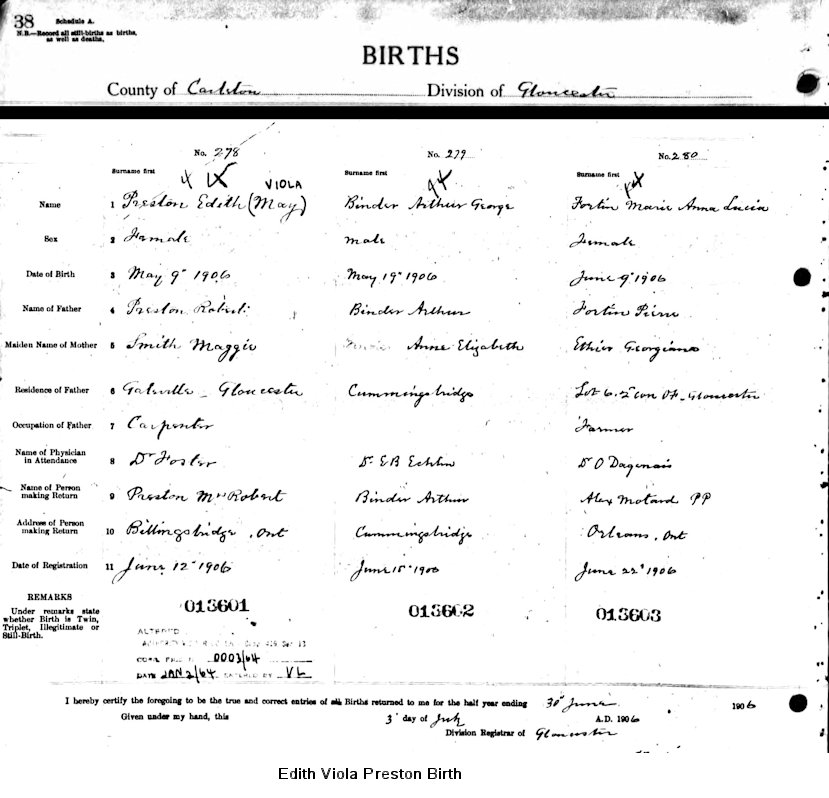 38 Schedule A.
N.B.—Record all still-births as births, as well as deaths.
BIRTHS
County of Carleton Division of Gloucester
No. 278 No. 279 No. 280
Surname first Surname first Surname first
VIOLA
Name 1 Preston Edith (May) Binder Arthur George Fortin Marie Anna Lucia
Sex 2 Female male Female
Date of Birth 3 May 9" 1906 May 19" 1906 June 9" 1906
Name of Father 4 Preston Robert Binder Arthur Fortin Pierre
Maiden Name of Mother 5 Smith Maggie Anne Elizabeth Ethier Georgiana
Residence of Father 6 Gloucester Cummingsbridge Lot 6. 2" con OF - Gloucester
Occupation of Father 7 Carpenter Farmer
Name of Physician in Attendance 8 Dr Foster Dr E B Echlin Dr O Dagenais
Name of Person making Return 9 Preston Mrs Robert Binder Arthur Alex Motard PP
Address of Person making Return 10 Billingsbridge, Ont Cummingsbridge Orleans, Ont
Date of Registration 11 June 12" 1906 June 15" 1906 June 22" 1906
REMARKS
Under remarks state whether Birth is Twin, Triplet, Illegitimate or Still-Birth.
013601 013602 013603
ALTERED
0003/64
DATE JAN 2/64 VL
I hereby certify the foregoing to be the true and correct entries of all Births returned to me for the half year ending 30" June 1906
Given under my hand, this 3" day of July A.D. 1906
Division Registrar of Gloucester
Edith Viola Preston Birth